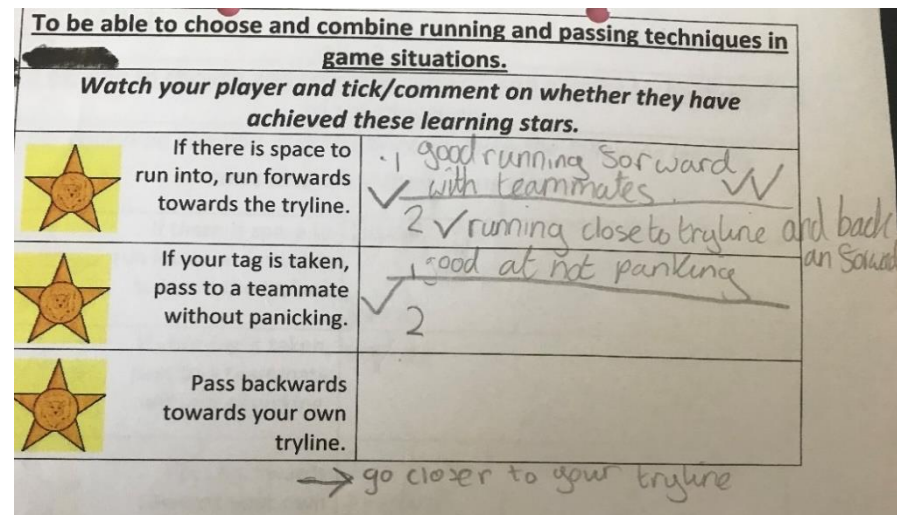 To be able to choose and combine running and passing techniques in
game situations.
Watch your player and tick/comment on whether they have
achieved these learning stars.
If there is space to
run into, run forwards
towards the tryline.
.1 good running Sorward ✓✓
✓ with teammates.
2 ✓ running close to tryline and back
an Sorward
If your tag is taken,
pass to a teammate
without panicking.
1 good at not panking
✓
2
Pass backwards
towards your own
tryline.
→ go closer to your tryline